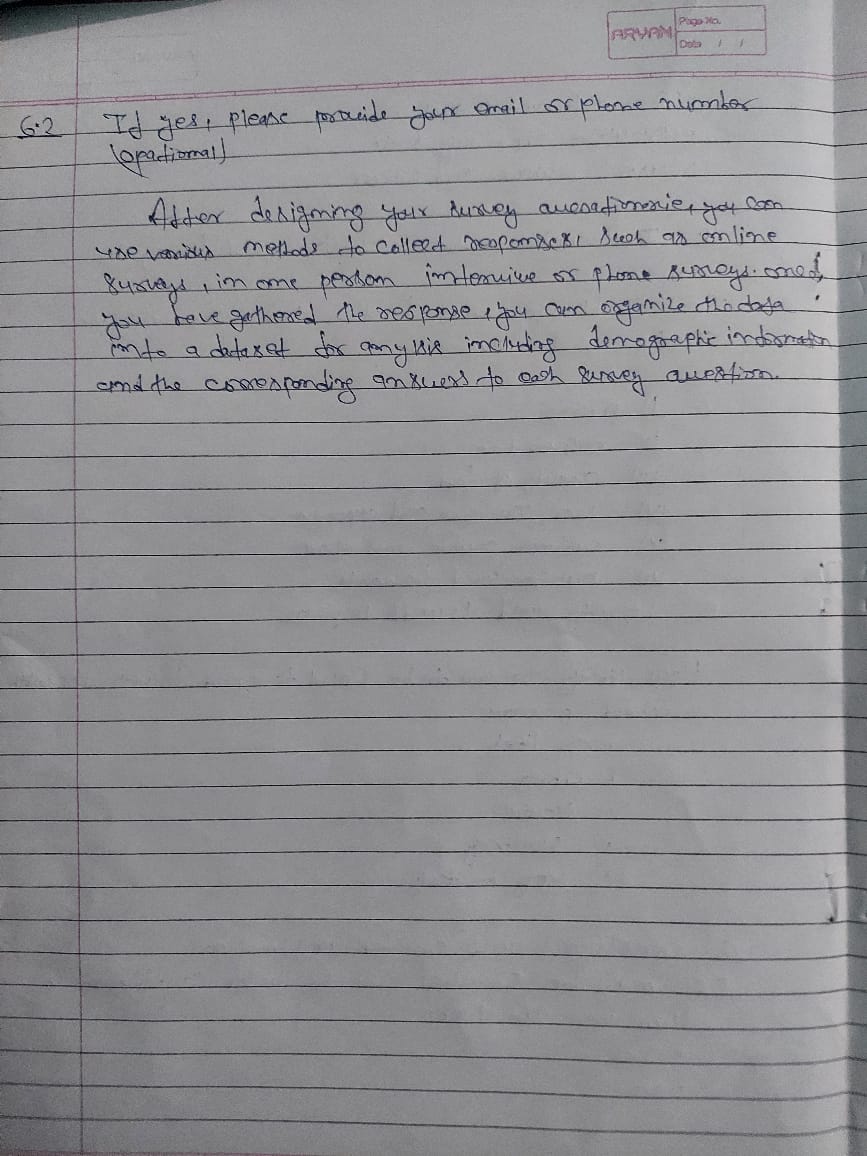 ARYAN
Page No.
Date / /
6.2 If yes, please provide your email or phone number
(opactional)
After designing your survey auesationarie, you can
use various methods to collect responses, such as online
surveys, in one person interuiwe or phone surveys. oned,
you have gathered the response, you can organize the data
into a dataset for analysis including demographic information
and the corresponding answers to each survey auestion.